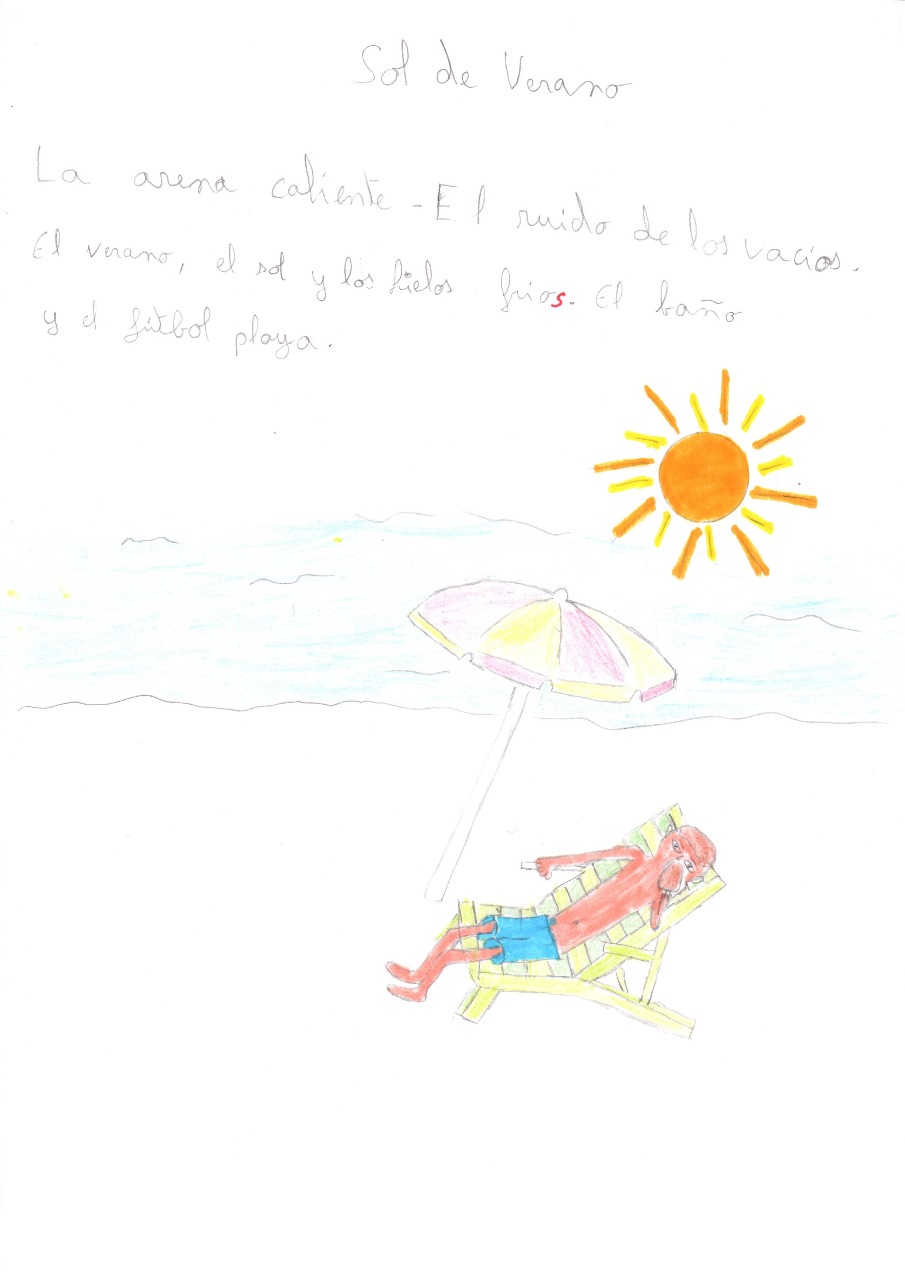 Sol de Verano
La arena caliente - El ruido de los vacíos.
El verano, el sol y los hielos frios. El baño
y el fútbol playa.